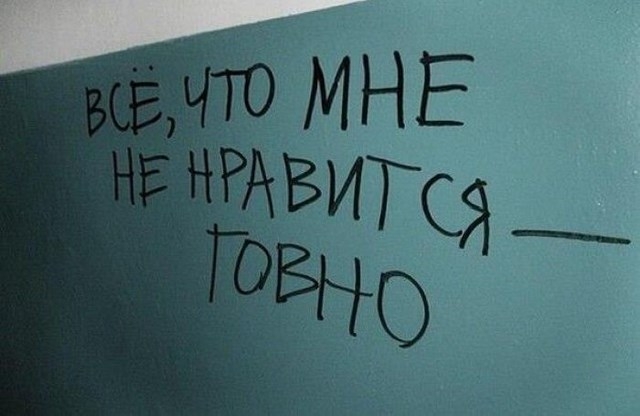 ВСЁ, ЧТО МНЕ
НЕ НРАВИТСЯ —
ГОВНО